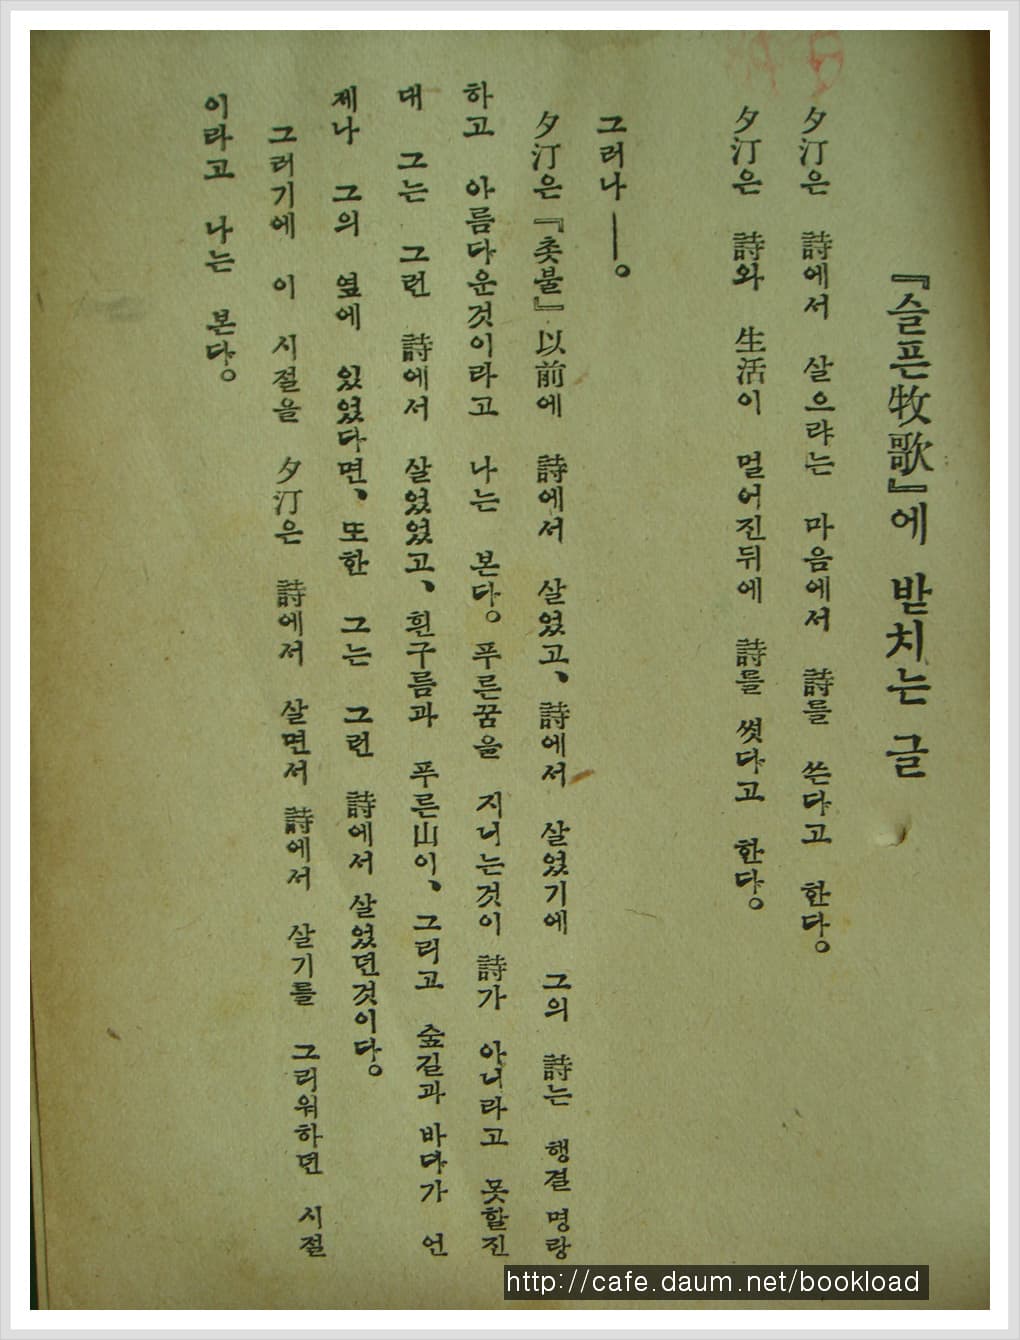 『슬픈牧歌』에 받치는 글
夕汀은 詩에서 살으랴는 마음에서 詩를 쓴다고 한다。
夕汀은 詩와 生活이 멀어진뒤에 詩를 썻다고 한다。
그러나──。
夕汀은『촛불』以前에 詩에서 살었고、詩에서 살었기에 그의 詩는 행결 명랑
하고 아름다운것이라고 나는 본다。푸른꿈을 지니는것이 詩가 아니라고 못할진
대 그는 그런 詩에서 살었었고、흰구름과 푸른山이、그리고 숲길과 바다가 언
제나 그의 옆에 있었다면、또한 그는 그런 詩에서 살었던것이다。
그러기에 이 시절을 夕汀은 詩에서 살면서 詩에서 살기를 그리워하던 시절
이라고 나는 본다。
http://cafe.daum.net/bookload